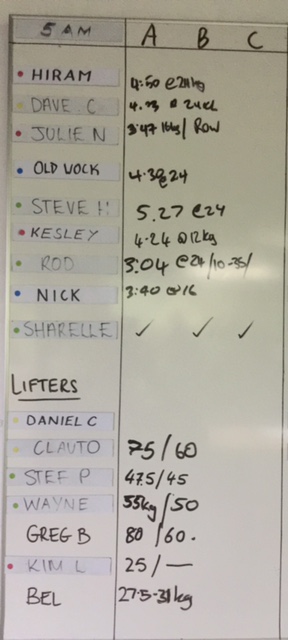 5 AM A B C
HIRAM 4:50 @24kg
DAVE C 4.23 @ 24
JULIE N 3:47 16kg / Row
OLD VOCK 4.3@24
STEVE H 5.27 @24
KESLEY 4.24 @12kg
ROD 3:04 @24/10-35/
NICK 3:40 @16
SHARELLE ✓ ✓ ✓
LIFTERS
DANIEL C
CLAUTO 75/60
STEF P 47.5/45
WAYNE 55kg/50
GREG B 80/60.
KIM L 25/—
BEL 27.5-31kg